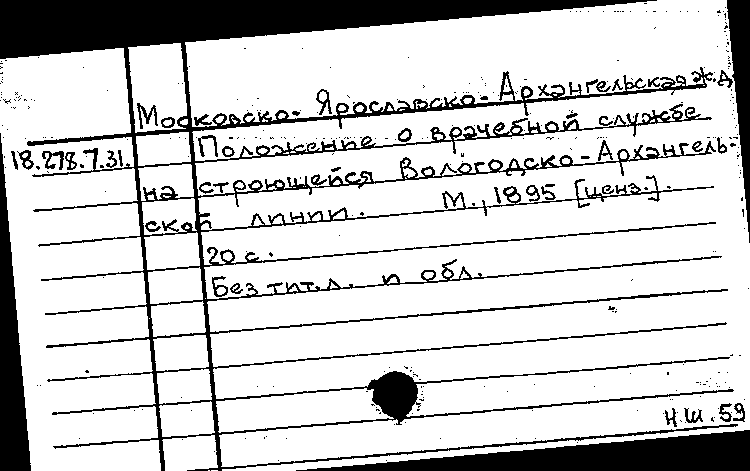 Московско-Ярославско-Архангельская ж.д.
18.278.7.31.
Положение о врачебной службе
на строющейся Вологодско-Архангель-
ской линии. М., 1895 [ценз.].
20 с.
Без тит. л. и обл.
Н.Ш. 59